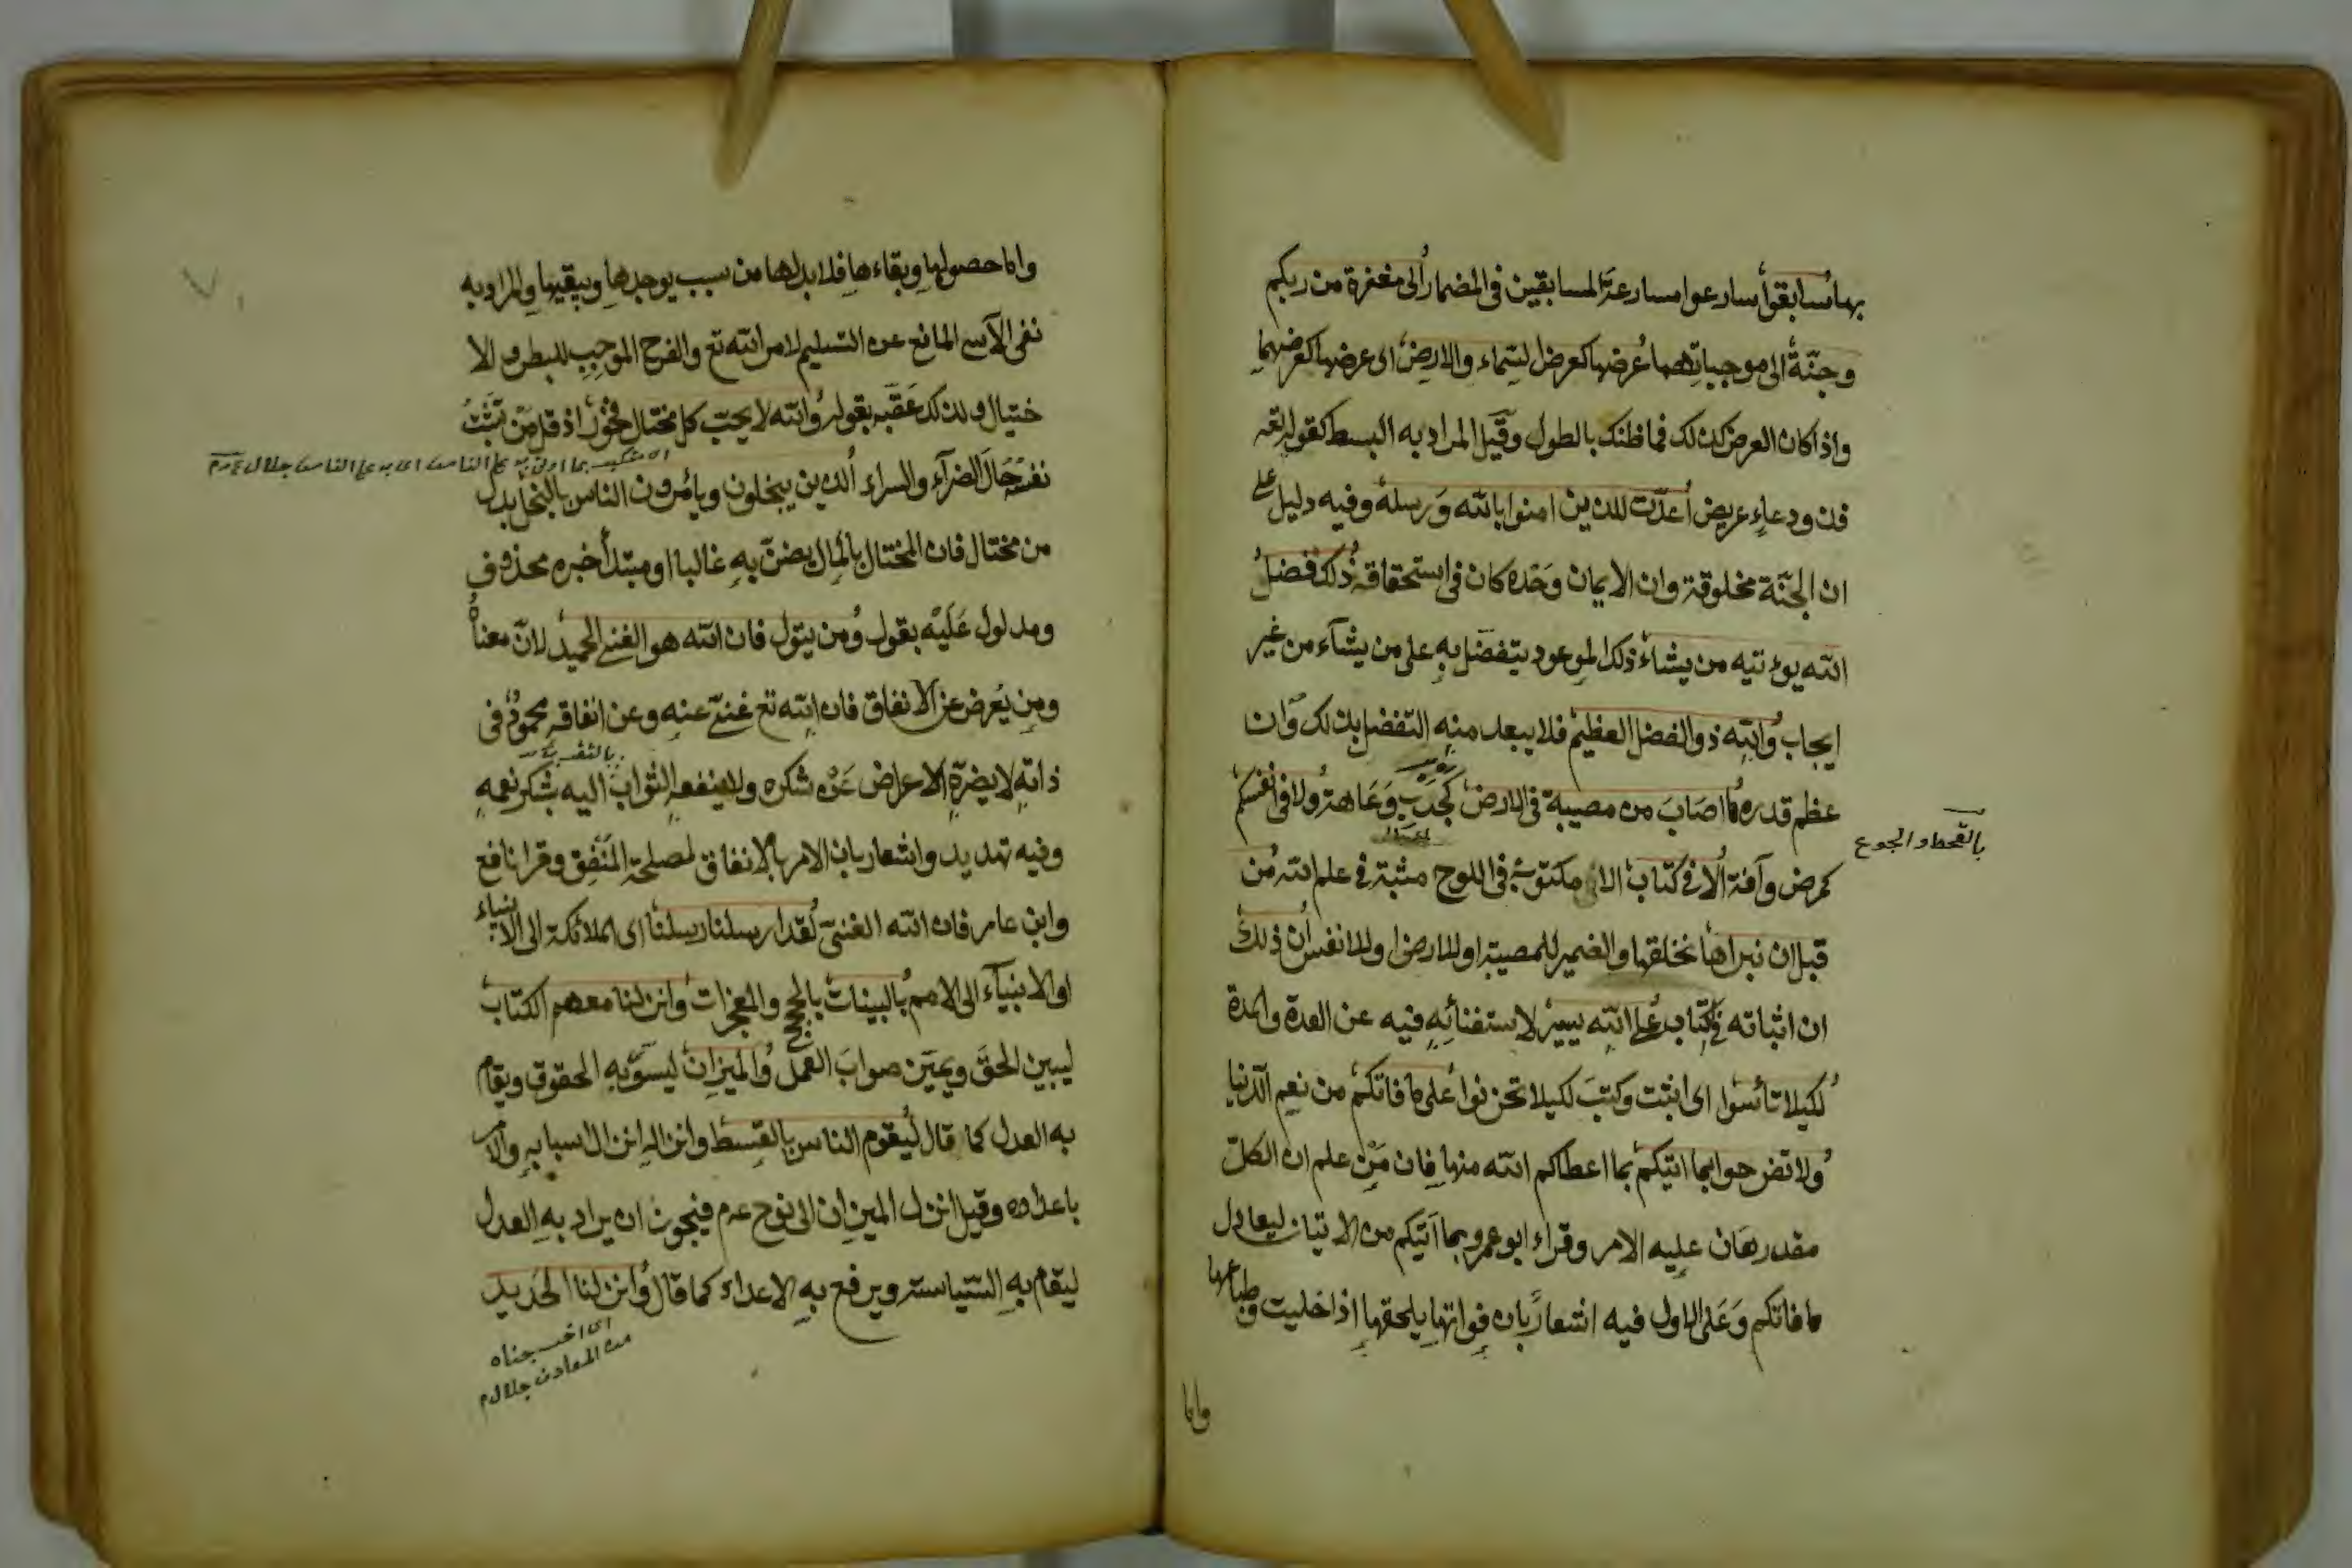 بها سابقوا سارعوا مسارعة المسابقين في المضمار الى مغفرة من ربكم
وجنّة الى موجباتهما عرضها كعرض السّماء والارض اى عرضها كعرضهما
واذا كان العرض كذلك فما ظنك بالطول وقيل المراد به البسط كقوله تعه
فذو دعاءٍ عريض اُعدّت للذين امنوا بالله وَرسله وفيه دليل على
ان الجنّة مخلوقة وان الايمان وَحْده كان في استحقاقه ذلك فضلُ
الله يوءتيه من يشاء ذلك الموعود يتفضّل بهِ على من يشآء من غير
ايجاب والله ذو الفضل العظيم فلا يبعد منهِ التفضل بذلك وَان
عظم قدره ما اصَابَ من مصيبة في الارض كجدبٍ وَعَاهة ولا في انفسكم
بالقحط والجوع
كمرض وآفة اِلّا في كتاب الا مكتوبة في اللوح مثبتة في علم الله من
قبل ان نبراها نخلقها والضمير للمصيبة او للارض او للانفس اِن ذلك
ان اثباته في كتاب على الله يسير لاستغنائِهِ فيه عن العدة والمدة
لكيلا تاسوا اى اثبت وكتبَ لكيلا تحزنوا على ما فاتكم من نعيم الدّنيا
ولا تفرحوا بما اتيكم بما اعطاكم الله منها فان مَنْ علم ان الكلّ
مقدر هَان عليه الامر وقراء ابو عمرو بما اَتيكم من الاتيان ليعادل
ما فاتكم وَعَلى الاول فيه اشعارٌ بان فواتها يلحقها اذا خليت وطباعها
واما
واما حصولها وبقاءها فلا بد لها من سبب يوجدها ويبقيها والمراد به
نفى الآسى المانع عن التسليم لامر الله تع والفرح الموجِبِ للبطر والا
ختيال ولذلك عَقّبه بقوله والله لا يحبّ كل مختال فخور اذ قل مَنْ تَثبّتُ
نفسه حَالَ الضرآء والسراء الذين يبخلون ويأمرون الناس بالبخل بدل
من مختال فان المختال بالمال يضنّ بهِ غالبا او مبتدأ خبره محذوف
ومدلول عَلَيْه بقوله ومن يتول فان الله هو الغنى الحميد لانّ معناه
ومن يُعرض عن الانفاق فان الله تع غنىّ عنهِ وعن انفاقه محمودٌ في
ذاتهِ لا يضرّه الاعراض عَنْ شكره ولا ينفعه الثواب اليه بشكر نعمهِ
وفيه تهديد واشعار بان الامر بالانفاق لمصلحة المنْفِق وقرا نافع
وابن عامر فان الله الغنىّ لقد ارسلنا رسلنا اى الملائكة الى الانبياء
او الانبيآء الى الامم بالبينات بالحجج والمعجزات وانزلنا معهم الكتاب
ليبين الحقّ ويميّن صوابَ العمل والميزان ليسوّى بهِ الحقوق ويقام
به العدل كما قال ليقوم الناس بالقسط وانزاله انزال اسبابهِ والامر
باعداده وقيل انزل الميزان الى نوح عم فيجوز ان يراد بهِ العدل
ليقام بهِ السّياسة ويرفع بهِ الاعداء كما قال وانزلنا الحَديد
اى اخرجناه
من المعادن جلال م